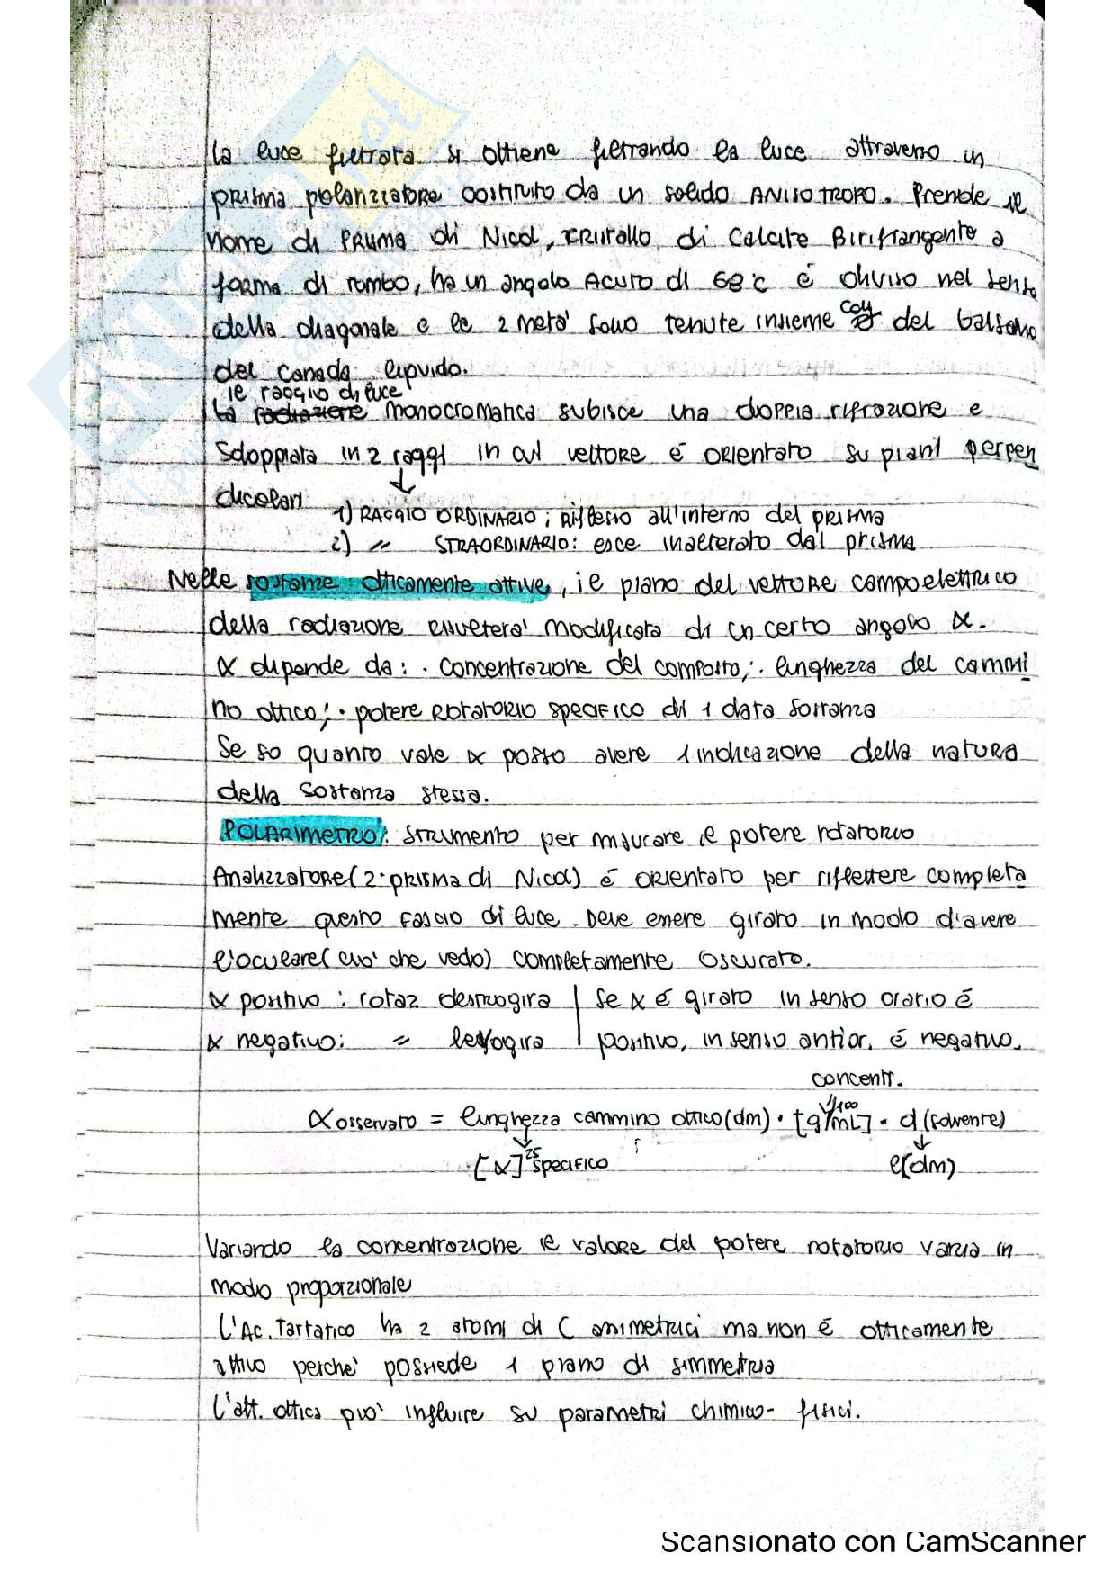 La luce filtrata si ottiene filtrando la luce attraverso un
prisma polarizzatore costituito da un solido ANISOTROPO. Prende il
nome di PRISMA di Nicol, cristallo di Calcite Birifrangente a
forma di rombo, ha un angolo Acuto di 68°c è diviso nel senso
della diagonale e le 2 metà sono tenute insieme con del balsamo
del Canada liquido.
il raggio di luce
La radiazione monocromatica subisce una doppia rifrazione e
Sdoppiata in 2 raggi in cui vettore è orientato su piani perpen
dicolari
1) RAGGIO ORDINARIO: Riflesso all'interno del prisma
2) " STRAORDINARIO: esce inalterato dal prisma
Nelle sostanze otticamente attive, il piano del vettore campo elettrico
della radiazione risulterà modificato di un certo angolo α.
α dipende da: · concentrazione del composto; · lunghezza del cammi
no ottico; · potere ROTATORIO SPECIFICO di 1 data sostanza
Se so quanto vale α posso avere 1 indicazione della natura
della sostanza stessa.
POLARIMETRO: strumento per misurare il potere rotatorio
Analizzatore (2° prisma di Nicol) è orientato per riflettere completa
mente questo fascio di luce. Deve essere girato in modo d'avere
l'oculare (ciò che vedo) completamente oscurato.
α positivo: rotaz destrogira | Se α è girato in senso orario è
α negativo: " levogira | positivo, in senso antior. è negativo.
concentr.
α osservato = lunghezza cammino ottico (dm) · [g/100 mL] · d (solvente)
· [α]²⁵ specifico l(dm)
Variando la concentrazione il valore del potere rotatorio varia in
modo proporzionale
L'Ac. Tartarico ha 2 atomi di C asimmetrici ma non è otticamente
attivo perchè possiede 1 piano di simmetria
L'att. ottica può influire su parametri chimico-fisici.
Scansionato con CamScanner